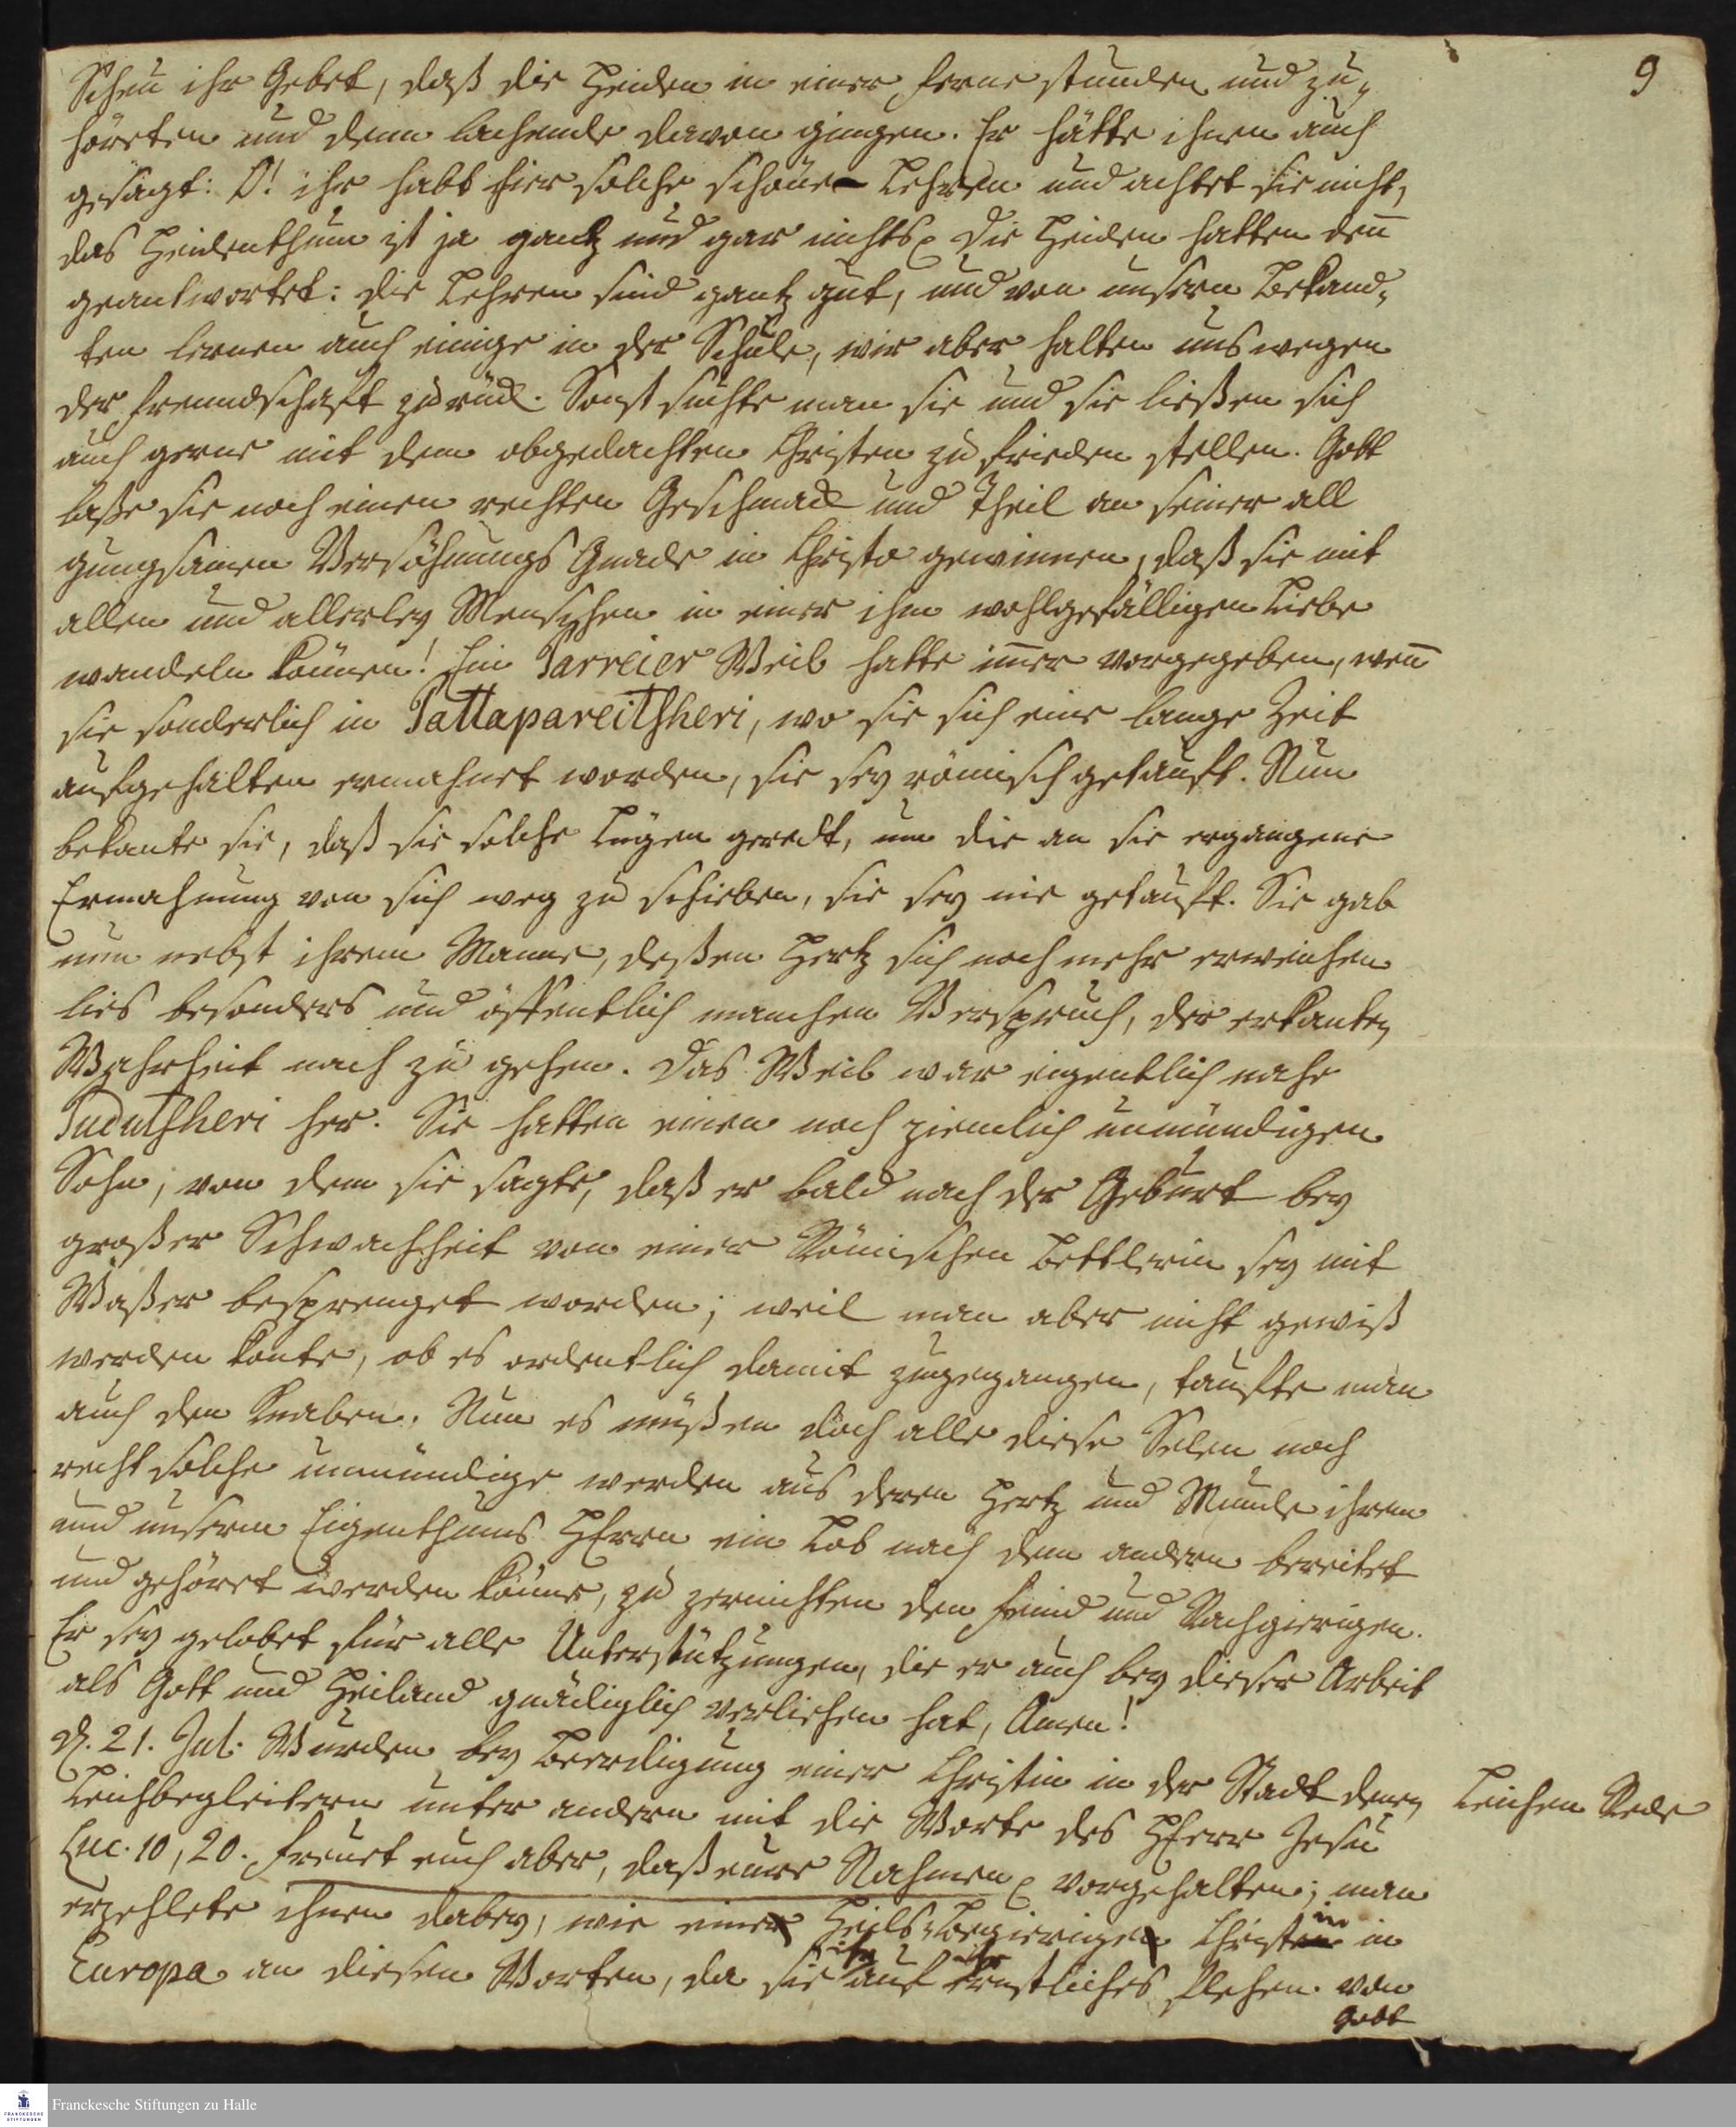 9
Scheu ihr Gebet, daß die Heiden in einer Ferne stunden und zu-
höreten und denn lachende davon gingen. Er hätte ihnen auch
gesagt: O! ihr habt hier solche schöne Lehren und achtet sie nicht,
das Heidenthum ist ja gantz und gar nichts. Die Heiden hatten den̅
geantwortet: die Lehren sind gantz gut, und von unsern Bekand-
ten lernen auch einige in der Schule, wir aber halten uns wegen
der Freundschaft zurück. Sonst suchte man sie und sie ließen sich
auch gerne mit dem obgedachten Christen zu frieden stellen. Gott
laße sie noch einen rechten Geschmack und Theil an seiner all
gungsamen Versöhnungs Gnade in Christo gewinnen, daß sie mit
allen und allerley Menschen in einer ihm wohlgefälligen Liebe
wandeln können! Ein Parreier Weib hatte im̅er vorgegeben, wen̅
sie sonderlich in Pattapareitsheri, wo sie sich eine lange Zeit
aufgehalten ermahnet worden, sie sey römisch getauft. Nun
bekante sie, daß sie solche Lügen geredt, um die an sie ergangene
Ermahnung von sich weg zu schieben, sie sey nie getauft. Sie gab
nun nebst ihrem Manne, deßen Hertz sich noch mehr erweichen
lies besonders und öffentlich manchen Verspruch, der erkanten
Wahrheit nach zu gehen. Das Weib war eigentlich nahe
Pudutsheri her. Sie hatten einen noch ziemlich unmündigen
Sohn, von dem sie sagte, daß er bald nach der Geburt bey
großer Schwachheit von einer Römischen Bettlerin sey mit
Waßer besprenget worden; weil man aber nicht gewiß
werden konte, ob es ordentlich damit zugegangen, taufte man
auch den Knaben. Nun es müßen doch alle diese Selen noch
recht solche unmündige werden aus deren Hertz und Munde ihrem
und unserm Eigenthums HErrn ein Lob nach dem andern bereitet
und gehöret werden könne, zu zernichten den Feind und Rachgierigen.
Er sey gelobet für alle Unterstützungen, die er auch bey dieser Arbeit
als Gott und Heiland gnädiglich verliehen hat, Amen!
D. 21. Jul. Wurden bey Beerdigung einer Christin in der Stadt denen
Leichen Rede
Leichbegleitern unter andern mit die Worte des HErrn Jesu
Luc. 10, 20. Freuet euch aber, daß eure Nahmen vorgehalten; man
erzehlete ihnen dabey, wie einer Heils-Begierigen Christin in
Europa an diesen Worten, da sie auf ihr ernstliches Flehen von
Gott
Franckesche Stiftungen zu Halle